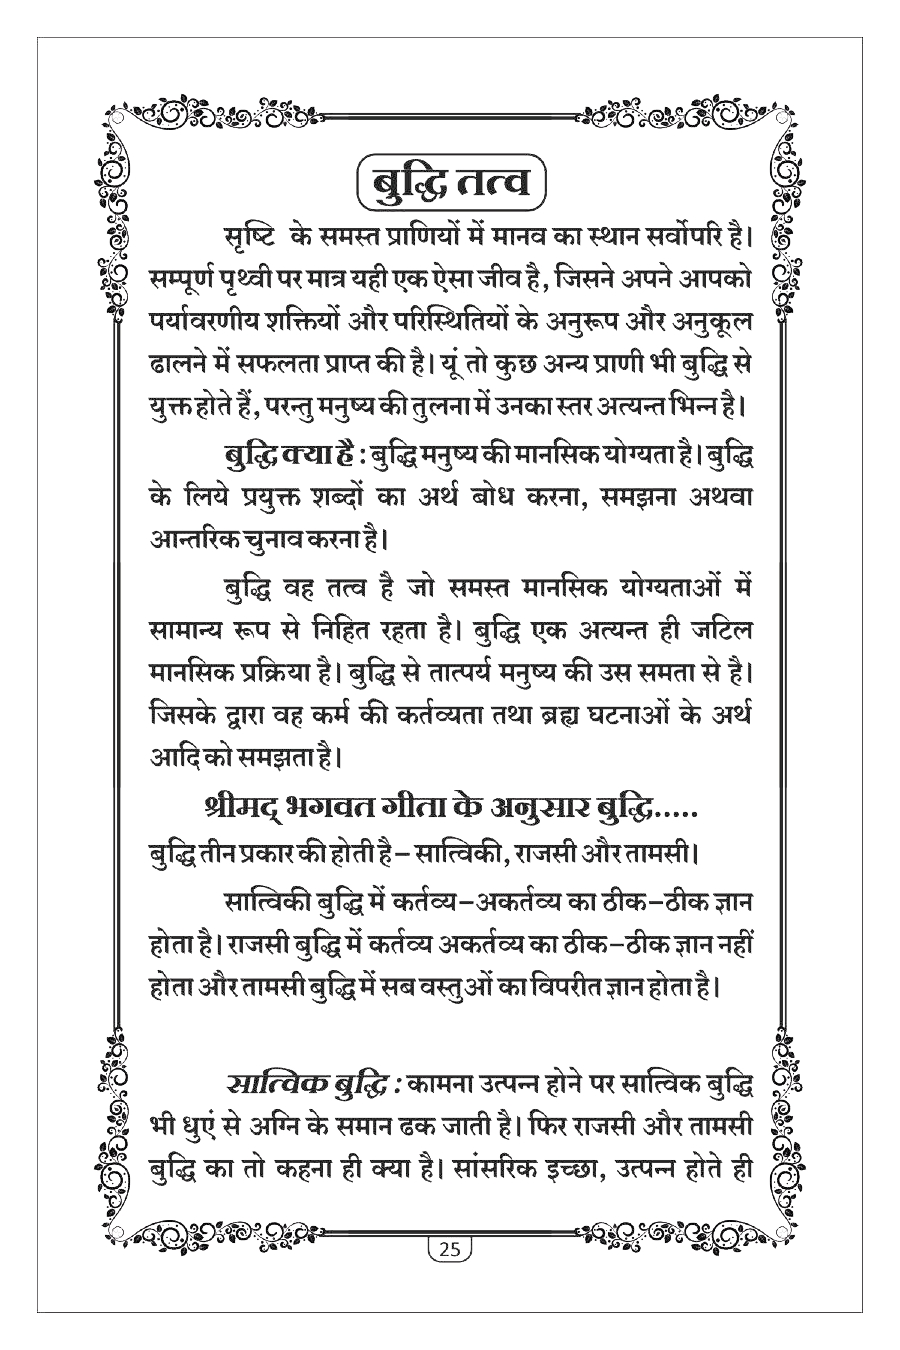 बुद्धि तत्व
सृष्टि के समस्त प्राणियों में मानव का स्थान सर्वोपरि है।
सम्पूर्ण पृथ्वी पर मात्र यही एक ऐसा जीव है, जिसने अपने आपको
पर्यावरणीय शक्तियों और परिस्थितियों के अनुरूप और अनुकूल
ढालने में सफलता प्राप्त की है। यूं तो कुछ अन्य प्राणी भी बुद्धि से
युक्त होते हैं, परन्तु मनुष्य की तुलना में उनका स्तर अत्यन्त भिन्न है।
बुद्धि क्या है : बुद्धि मनुष्य की मानसिक योग्यता है। बुद्धि
के लिये प्रयुक्त शब्दों का अर्थ बोध करना, समझना अथवा
आन्तरिक चुनाव करना है।
बुद्धि वह तत्व है जो समस्त मानसिक योग्यताओं में
सामान्य रूप से निहित रहता है। बुद्धि एक अत्यन्त ही जटिल
मानसिक प्रक्रिया है। बुद्धि से तात्पर्य मनुष्य की उस समता से है।
जिसके द्वारा वह कर्म की कर्तव्यता तथा ब्रह्य घटनाओं के अर्थ
आदि को समझता है।
श्रीमद् भगवत गीता के अनुसार बुद्धि.....
बुद्धि तीन प्रकार की होती है– सात्विकी, राजसी और तामसी।
सात्विकी बुद्धि में कर्तव्य–अकर्तव्य का ठीक–ठीक ज्ञान
होता है। राजसी बुद्धि में कर्तव्य अकर्तव्य का ठीक–ठीक ज्ञान नहीं
होता और तामसी बुद्धि में सब वस्तुओं का विपरीत ज्ञान होता है।
सात्विक बुद्धि : कामना उत्पन्न होने पर सात्विक बुद्धि
भी धुएं से अग्नि के समान ढक जाती है। फिर राजसी और तामसी
बुद्धि का तो कहना ही क्या है। सांसरिक इच्छा, उत्पन्न होते ही
25